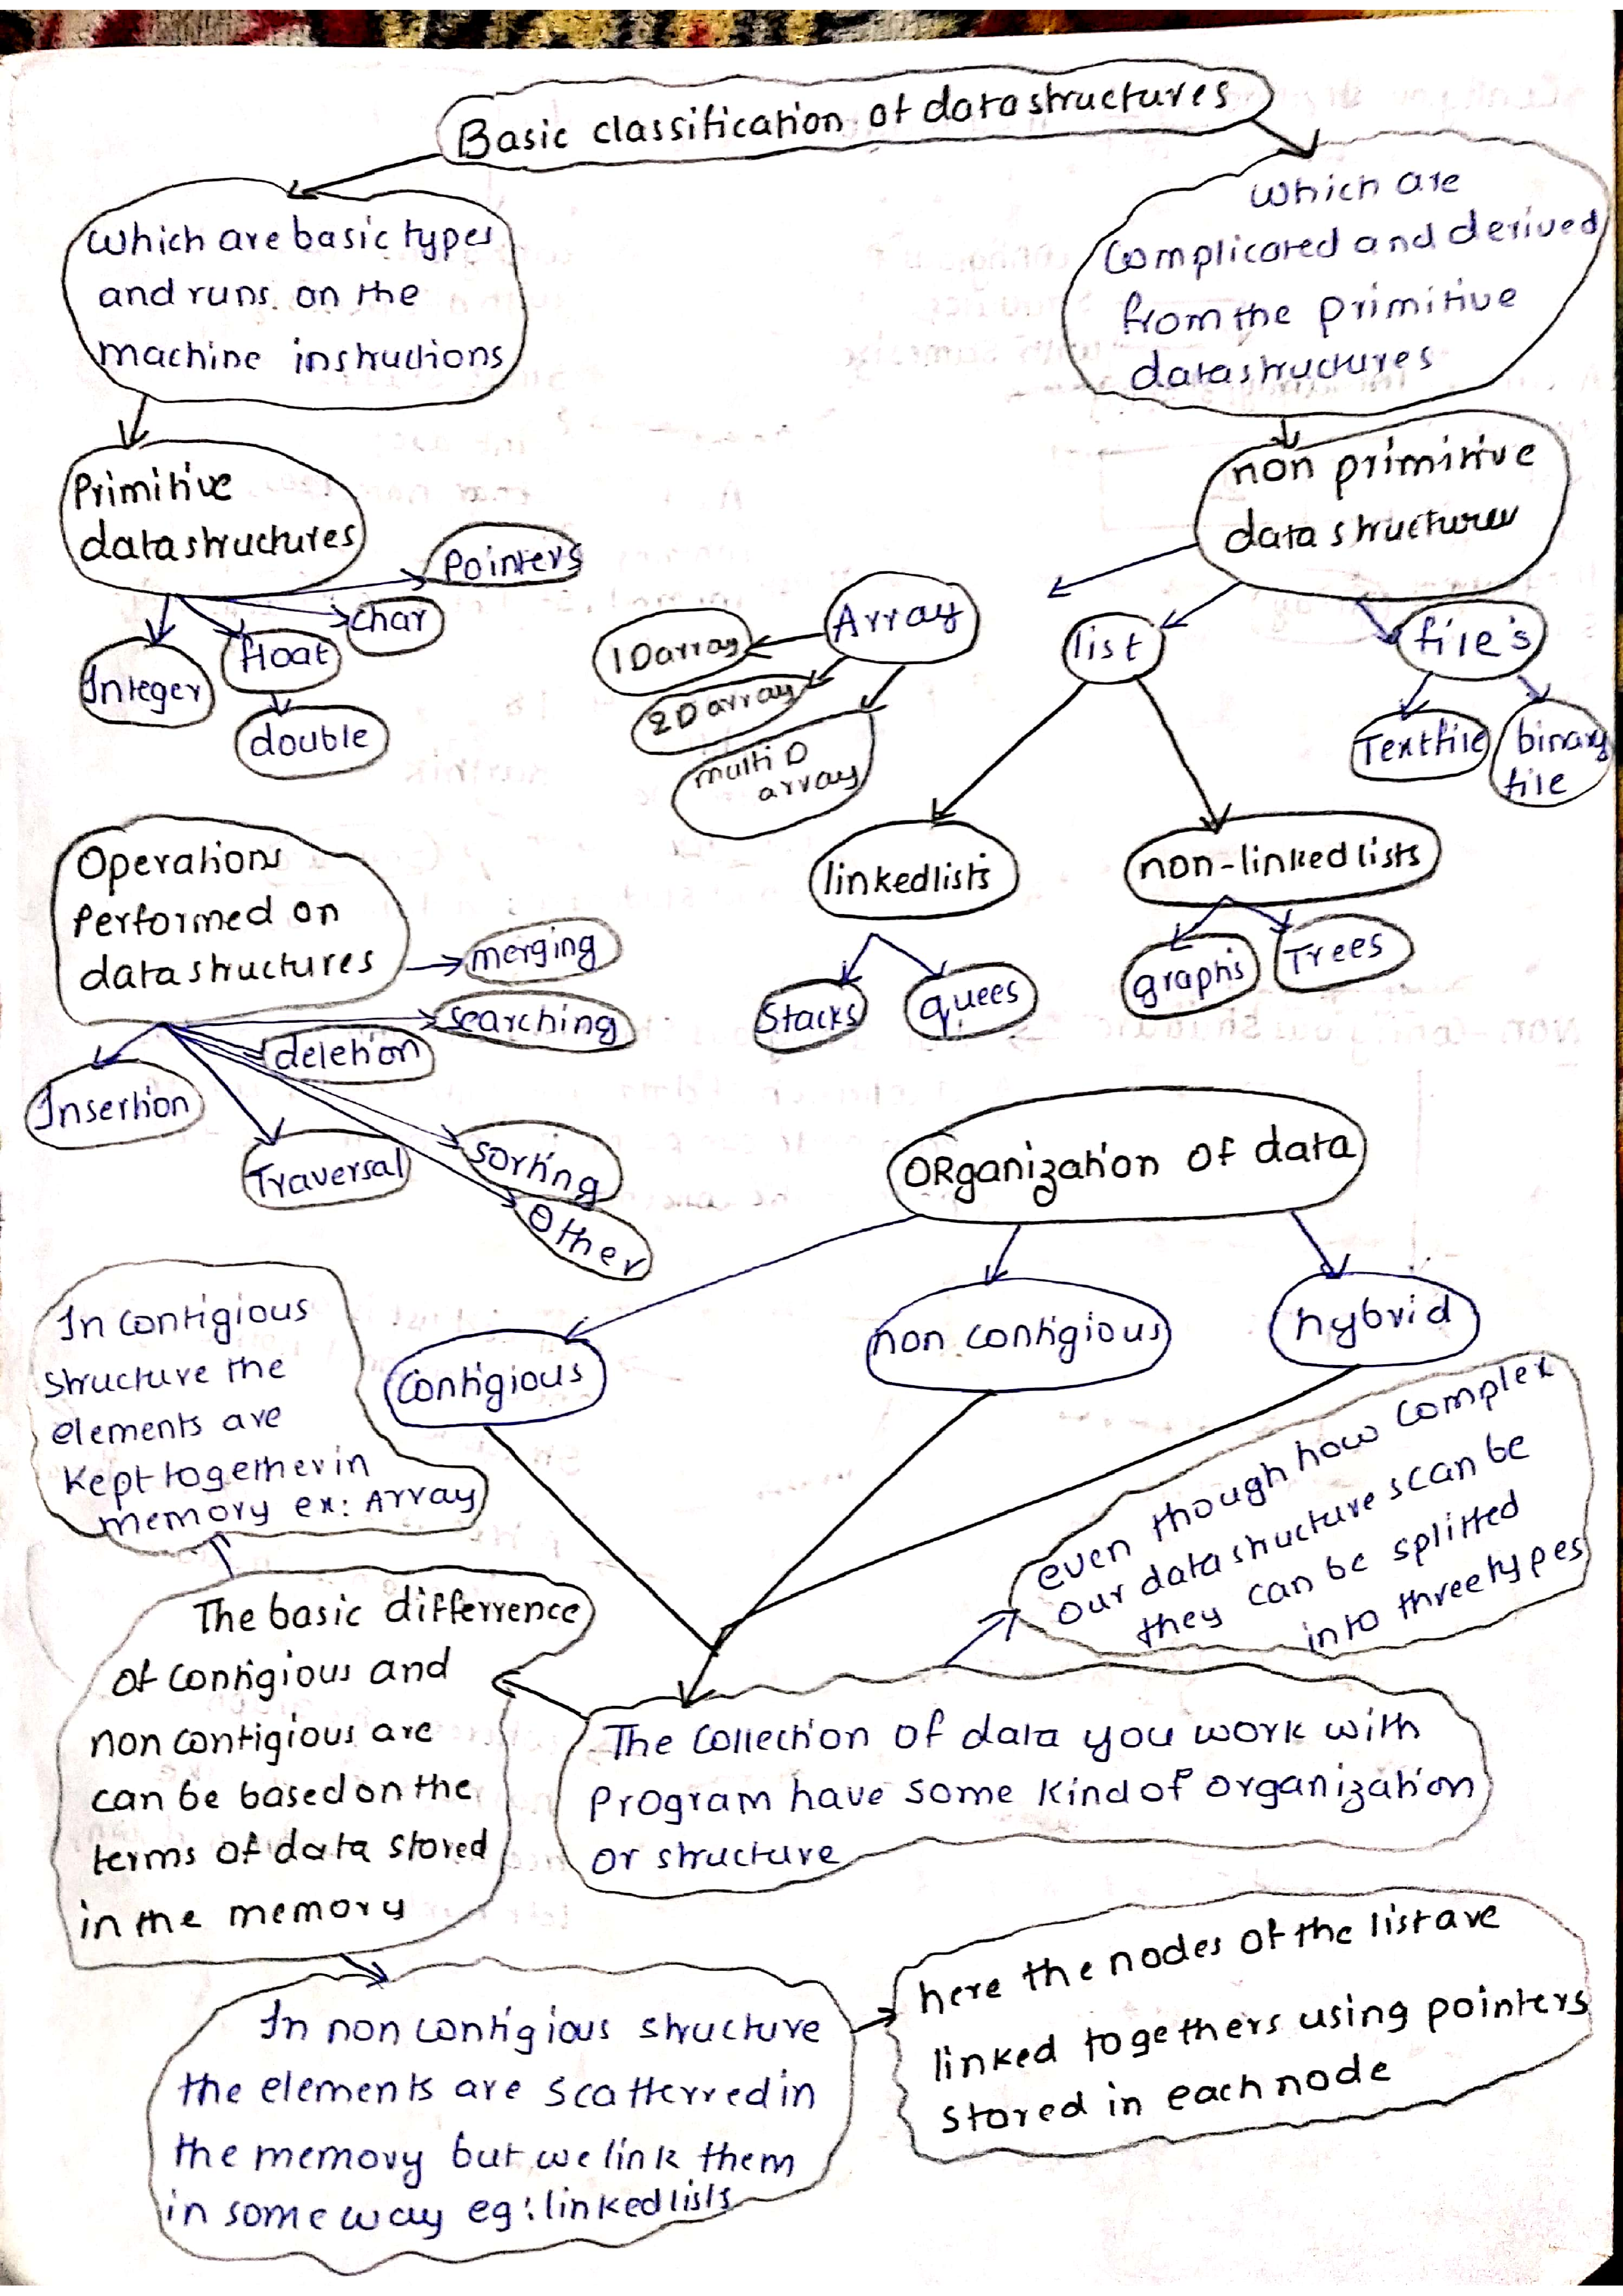 Basic classification of datastructures
which are basic types
and runs on the
machine instructions
which are
complicated and derived
from the primitive
datastructures
Primitive
datastructures
non primitive
data structures
Pointers
char
float
Integer
double
Array
1D array
2D array
multi D
array
list
file's
Textfile
binary
file
linkedlists
non-linked lists
Stacks
quees
graphs
Trees
Operations
Performed on
datastructures
merging
searching
deletion
Insertion
Traversal
sorting
Other
ORganization of data
Contigious
non contigious
hybrid
In contigious
structure the
elements are
kept together in
memory ex: Array
even though how complex
our datastructure scan be
they can be splitted
into three types
The basic differrence
of contigious and
non contigious are
can be based on the
terms of data stored
in the memory
The collection of data you work with
Program have some kind of organization
or structure
In non contigious structure
the elements are scatterred in
the memory but we link them
in some way eg: linkedlists
here the nodes of the list are
linked togethers using pointers
stored in each node